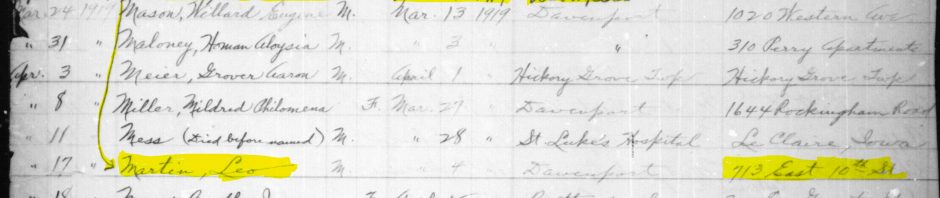 Mar. 24 1919 Mason, Willard Eugene M. Mar. 13 1919 Davenport 1020 Western Ave
" 31 " Maloney, Homan Aloysia M. " 3 " " 310 Perry Apartments
Apr. 3 " Meier, Grover Aaron M. April 1 " Hickory Grove Twp Hickory Grove Twp
" 8 " Miller, Mildred Philomena F. Mar. 27 " Davenport 1644 Rockingham Road
" 11 " Mess (Died before named) M. " 28 " St Luke's Hospital Le Claire, Iowa
" 17 " Martin, Leo M. " 4 " Davenport 713 East 10th St
" 18